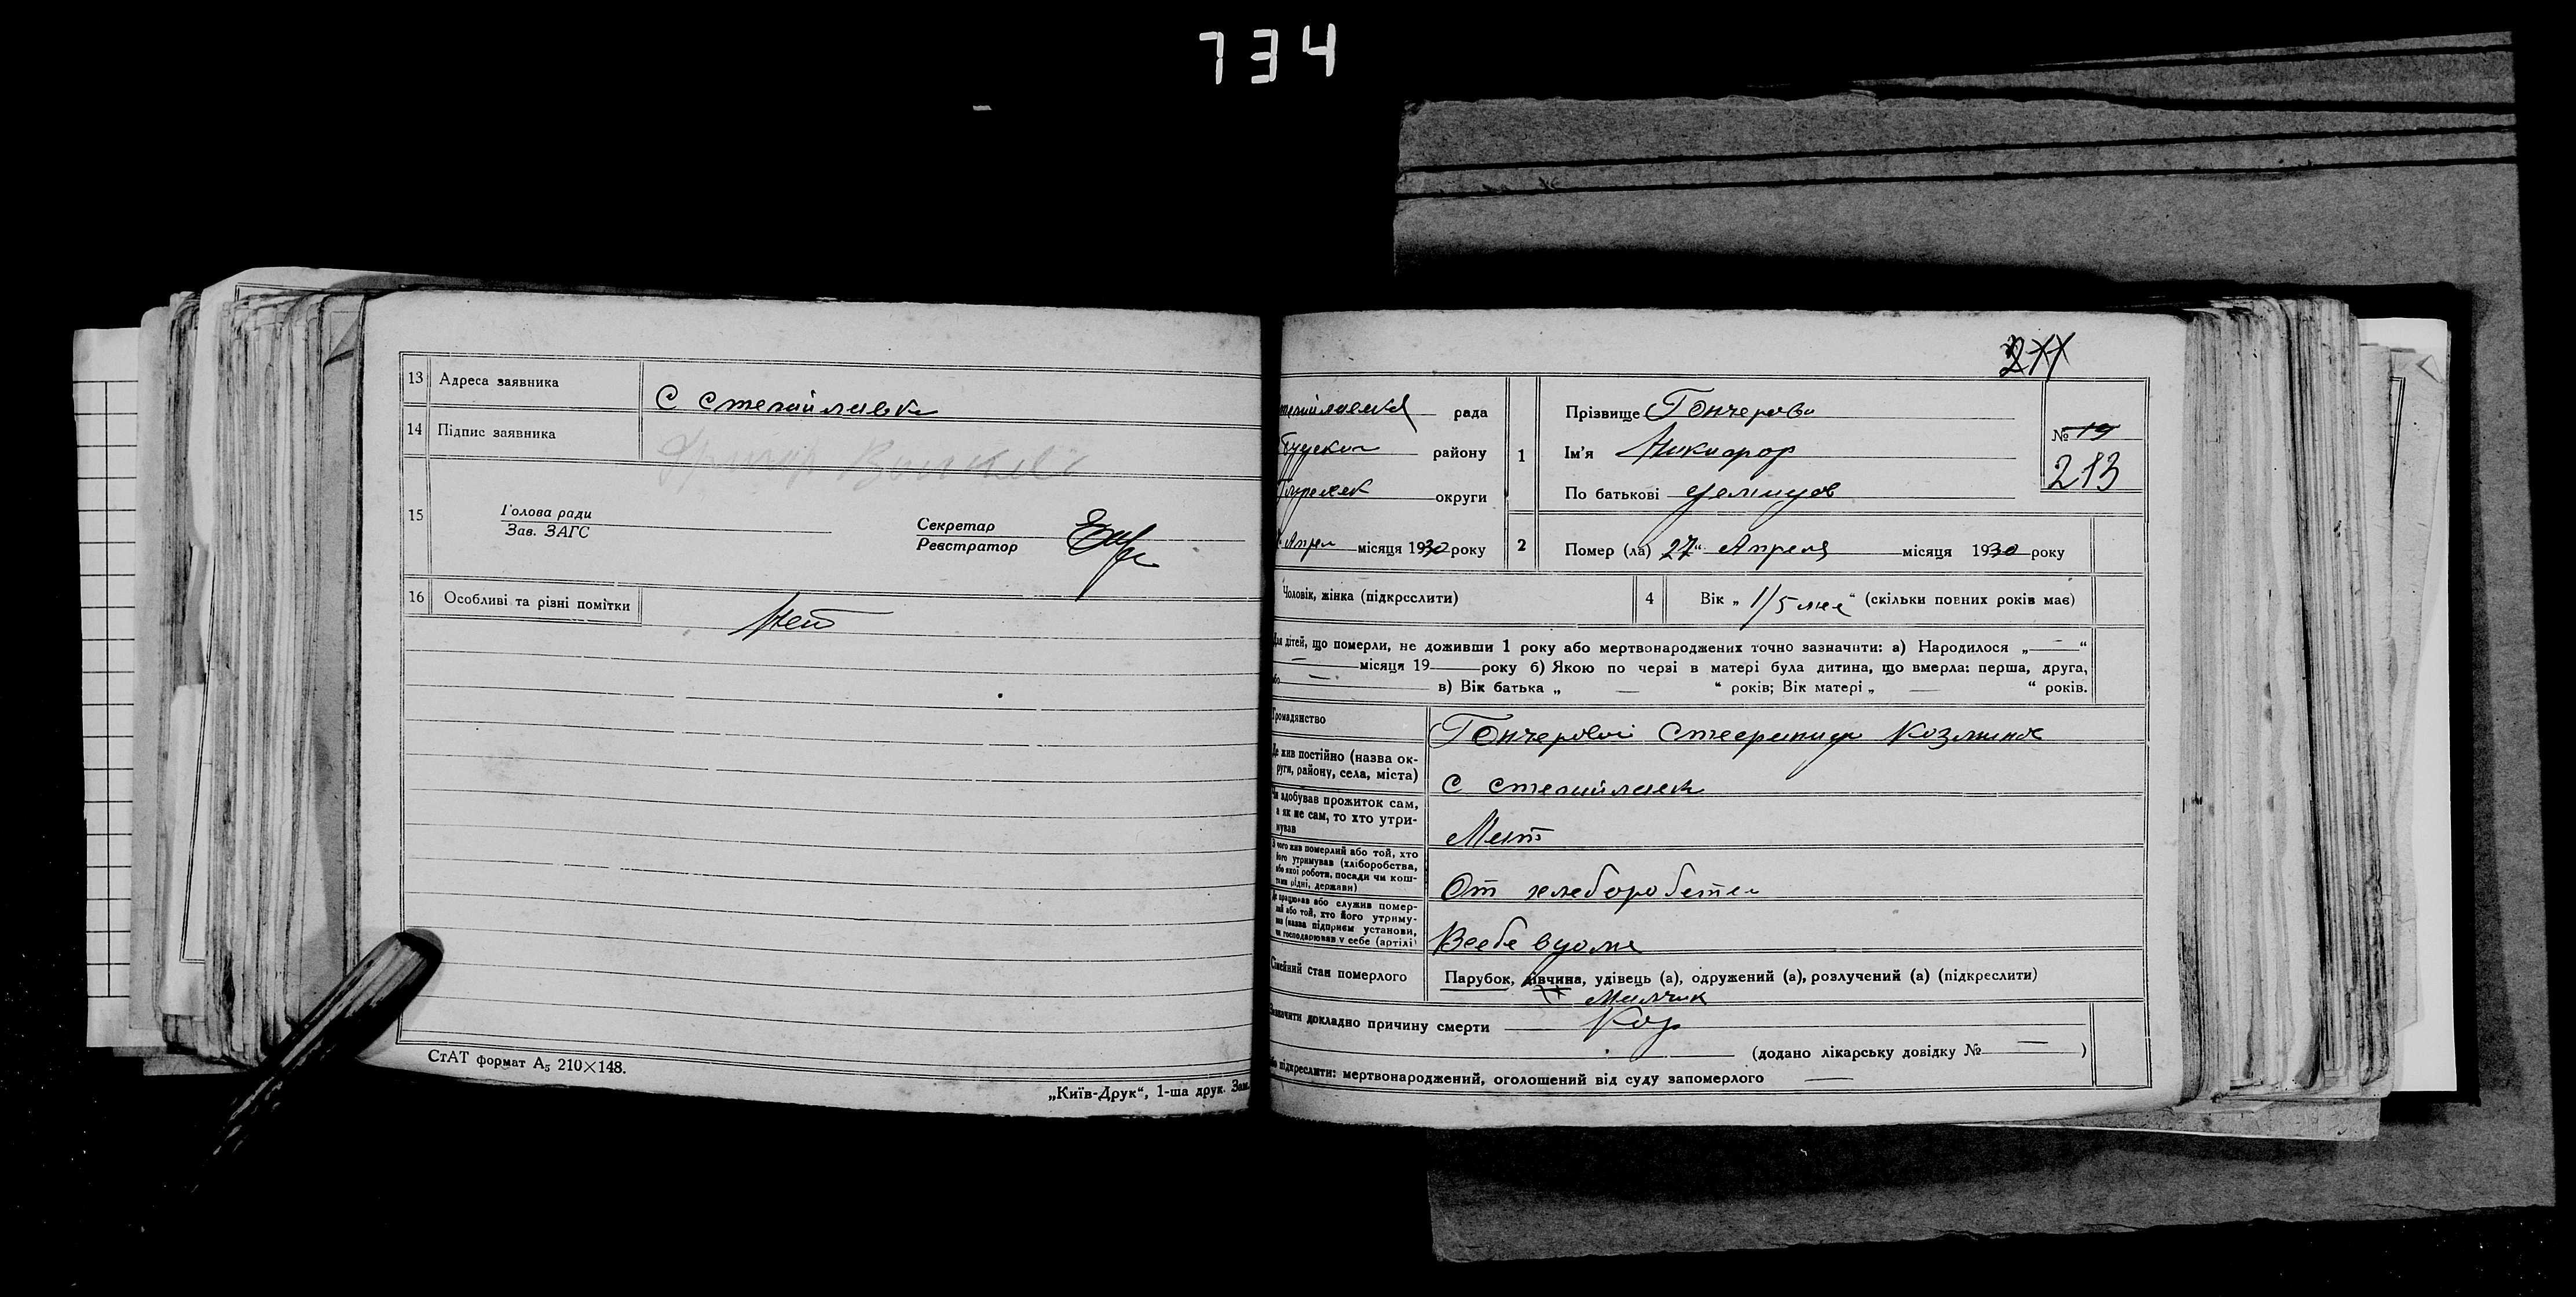 734
13 Адреса заявника С Степайлавка
14 Підпис заявника
15 Голова ради
Зав. ЗАГС
Секретар
Реєстратор
16 Особливі та різні помітки Нет
СтАТ формат А5 210×148.
„Київ-Друк“, 1-ша друк. Зам.
рада
району
округи
місяця 1930 року
1 Прізвище Гончерова
Ім'я Никифор
По батькові демидов
№ 19
213
2 Помер (ла) 27 „ Апреля місяця 1930 року
Чоловік, жінка (підкреслити)
4 Вік „ 1/5 мес “ (скільки повних років має)
Для дітей, що померли, не доживши 1 року або мертвонароджених точно зазначити: а) Народилося „—“
— місяця 19— року б) Якою по черзі в матері була дитина, що вмерла: перша, друга,
або — в) Вік батька „ — “ років; Вік матері „ — “ років.
Громадянство Гончеровой Стефанида Козмина
Де жив постійно (назва ок-
руги, району, села, міста) С Степайлавк
Чи здобував прожиток сам,
а як не сам, то хто утри-
мував Мать
З чого жив померлий або той, хто
його утримував (хліборобства,
або якої роботи, посади чи кош-
тами рідні, держави) От хлеборобства
Де працював або служив помер-
лий або той, хто його утриму-
вав (назва підприєм установи,
чи господарював у себе (артілі) Всебе вдома
Сімейний стан померлого Парубок, дівчина, удівець (а), одружений (а), розлучений (а) (підкреслити)
Малчик
Зазначити докладно причину смерти Кор
(додано лікарську довідку № — )
або підкреслити: мертвонароджений, оголошений від суду запомерлого —